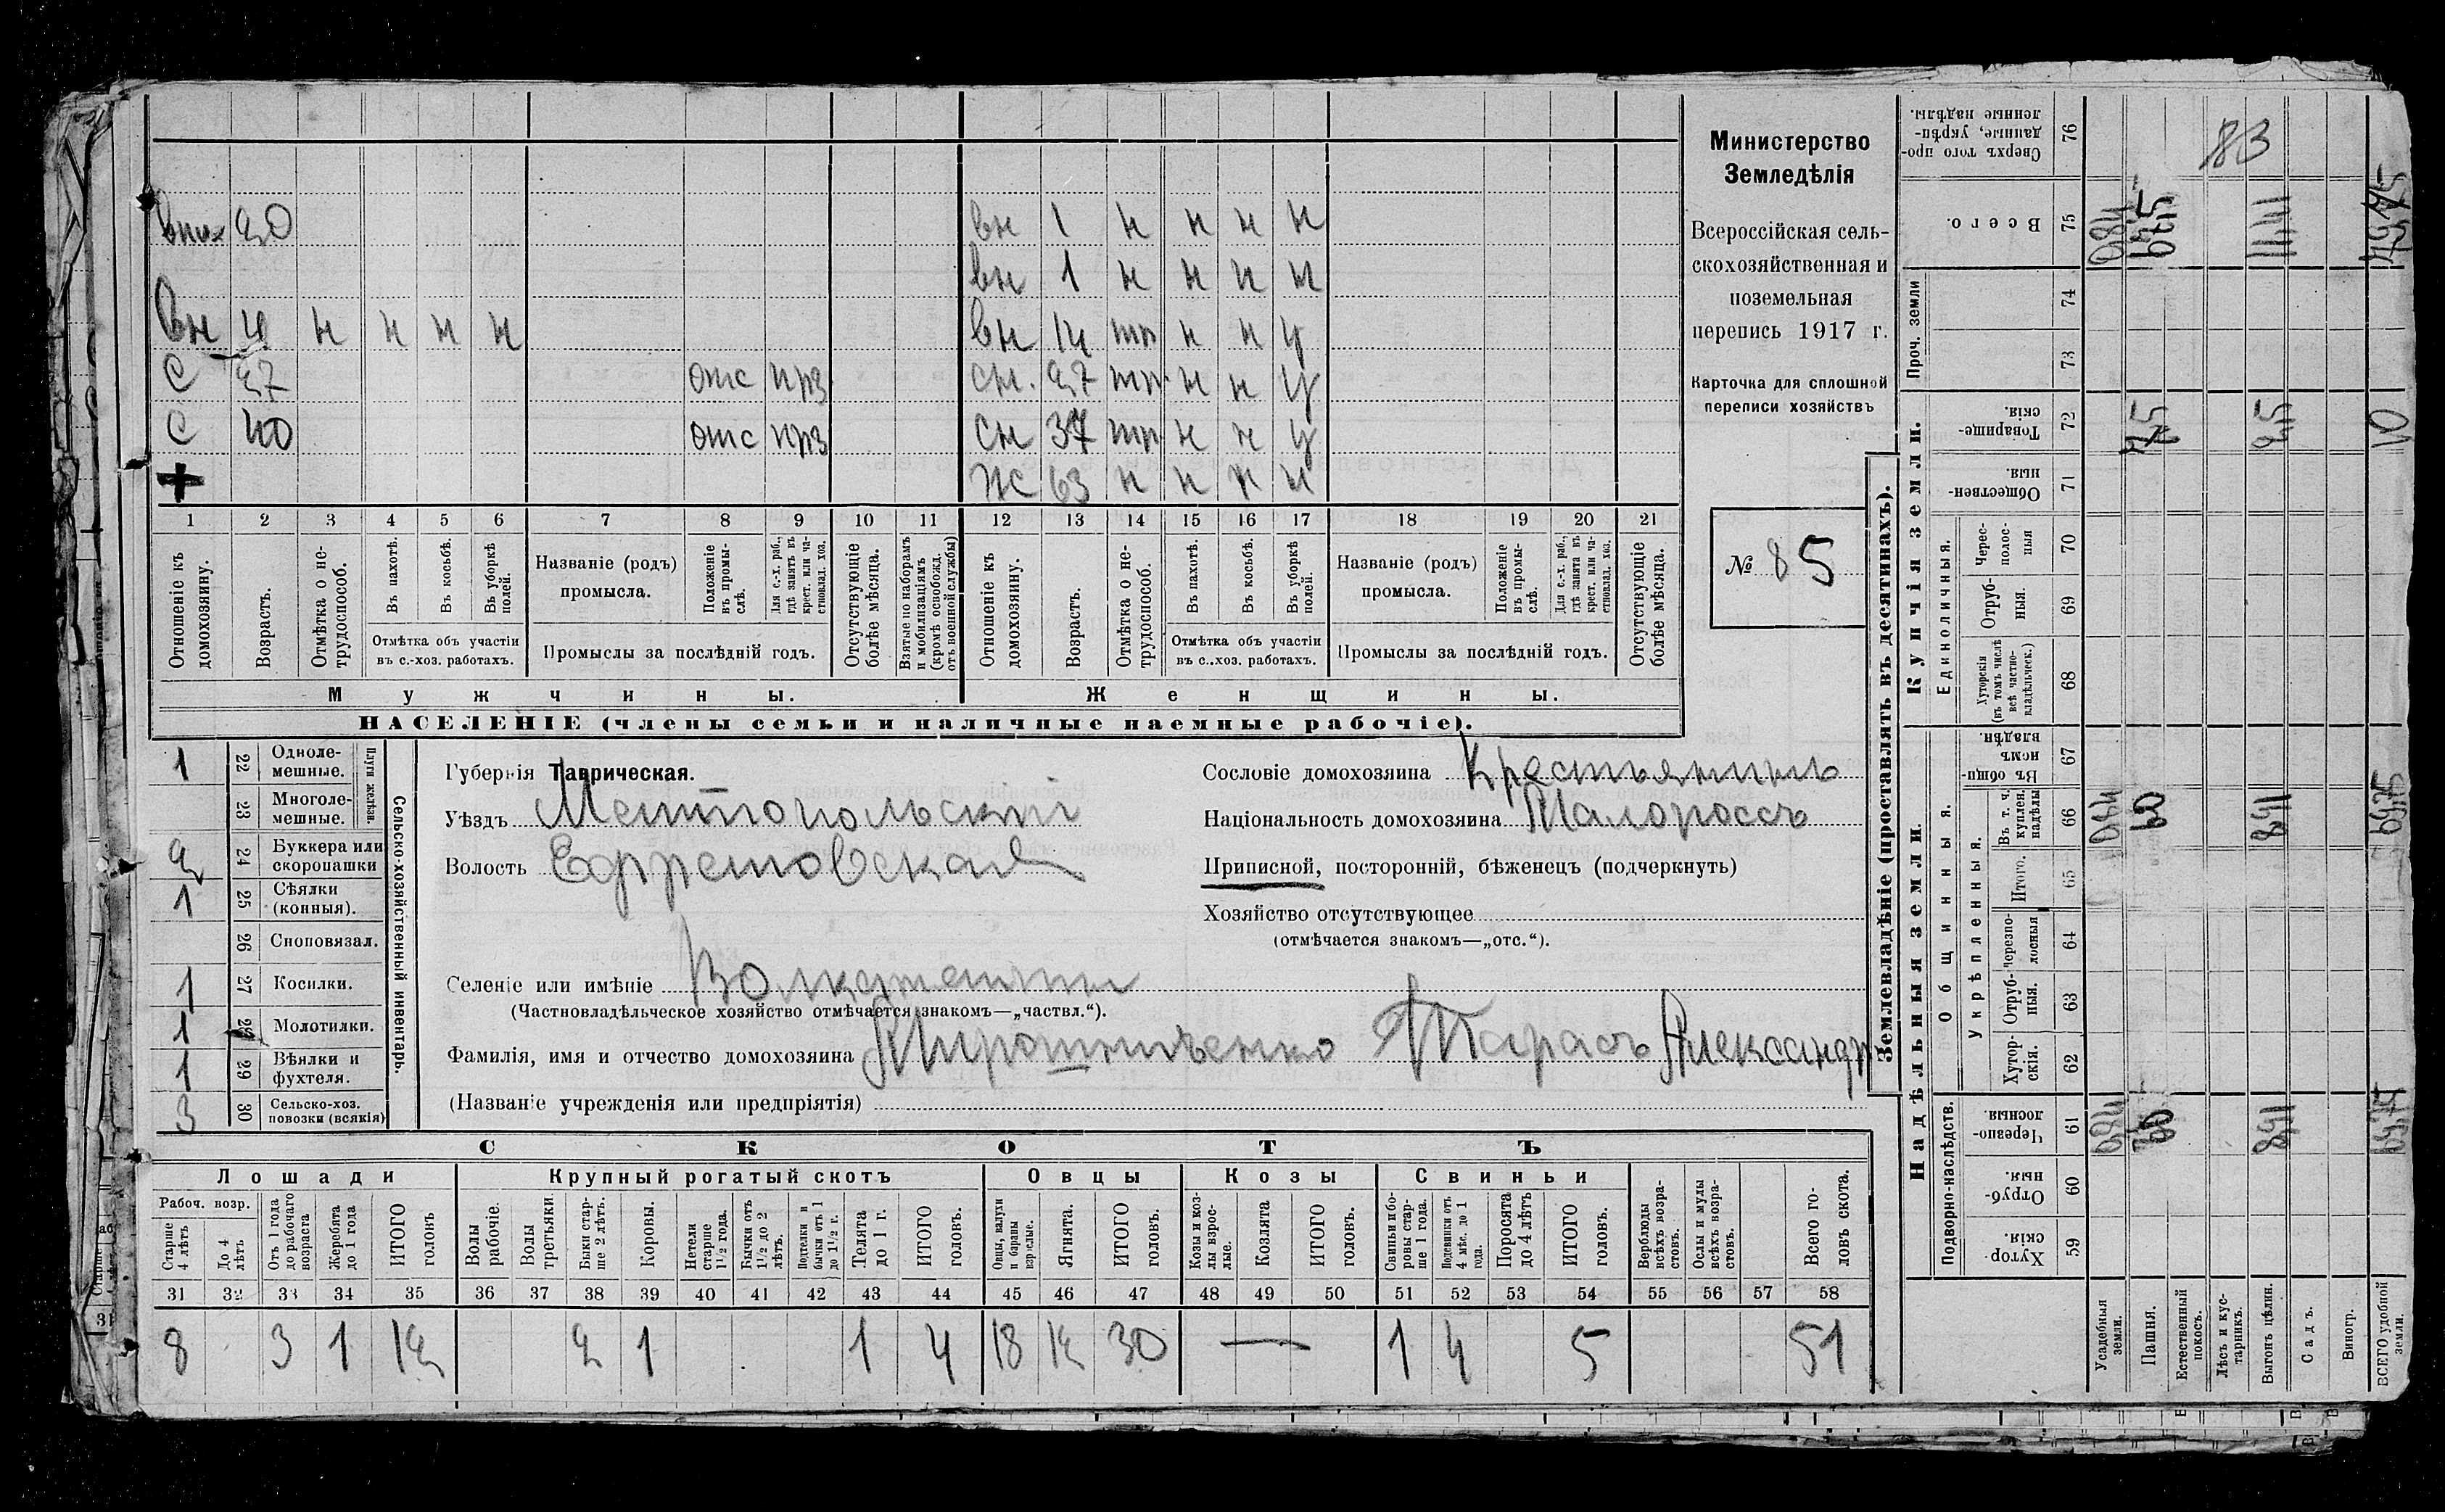 внх 20 вн 1 н н н н
вн 1 н н н н
Вн 4 н н н н вн 14 тр н н у
С 27 отс прз сн. 27 тр. н н у
С 40 отс прз сн 37 тр н н у
+ ж 63 н н н н
1 2 3 4 5 6 7 8 9 10 11 12 13 14 15 16 17 18 19 20 21
Отношеніе къ домохозяину.
Возрастъ.
Отмѣтка о нетрудоспособ.
Въ пахотѣ.
Въ косьбѣ.
Въ уборкѣ полей.
Отмѣтка объ участіи
въ с.-хоз. работахъ.
Названіе (родъ)
промысла.
Положеніе въ промыслѣ.
Для с.-х. раб., гдѣ занятъ въ крест. или частновлад. хоз.
Промыслы за послѣдній годъ.
Отсутствующіе болѣе мѣсяца.
Взятые по наборамъ и мобилизаціямъ (кромѣ освобожд. отъ военной службы)
Отношеніе къ домохозяину.
Возрастъ.
Отмѣтка о нетрудоспособ.
Въ пахотѣ.
Въ косьбѣ.
Въ уборкѣ полей.
Отмѣтка объ участіи
въ с..хоз. работахъ.
Названіе (родъ)
промысла.
Положеніе въ промыслѣ.
Для с.-х. раб., гдѣ занята въ крест. или частновлад. хоз.
Промыслы за послѣдній годъ.
Отсутствующіе болѣе мѣсяца.
Мужчины.
Женщины.
НАСЕЛЕНІЕ (члены семьи и наличные наемные рабочіе).
Министерство
Земледѣлія
Всероссійская сель-
скохозяйственная и
поземельная
перепись 1917 г.
Карточка для сплошной
переписи хозяйствъ
№ 85
1 22 Одноле-
мешные.
23 Многоле-
мешные.
Плуги желѣзн.
2 24 Буккера или
скоропашки
1 25 Сѣялки
(конныя).
26 Сноповязал.
1 27 Косилки.
1 28 Молотилки.
1 29 Вѣялки и
фухтеля.
3 30 Сельско-хоз.
повозки (всякія)
Сельско-хозяйственный инвентарь.
Губернія Таврическая.
Уѣздъ Мелитопольскій
Волость Ефремовская
Селеніе или имѣніе
(Частновладѣльческое хозяйство отмѣчается знакомъ—„частвл.“).
Фамилія, имя и отчество домохозяина Мирошниченко Тарасъ Александр
(Названіе учрежденія или предпріятія)
Сословіе домохозяина Крестьянинъ
Національность домохозяина Малороссъ
Приписной, посторонній, бѣженецъ (подчеркнуть)
Хозяйство отсутствующее
(отмѣчается знакомъ—„отс.“).
СКОТЪ
Лошади
Крупный рогатый скотъ
Овцы
Козы
Свиньи
Рабоч. возр.
Старше 4 лѣтъ
До 4 лѣтъ
Отъ 1 года до рабочаго возраста
Жеребята до 1 года
ИТОГО головъ
Волы рабочіе.
Волы третьяки.
Быки старше 2 лѣтъ.
Коровы.
Нетели старше 1½ года.
Бычки отъ 1½ до 2 лѣтъ.
Подтелки и бычки отъ 1 до 1½ г.
Телята до 1 г.
ИТОГО головъ.
Овцы, валухи и бараны взрослые.
Ягнята.
ИТОГО головъ.
Козы и козлы взрослые.
Козлята
ИТОГО головъ.
Свиньи и боровы старше 1 года.
Подсвинки отъ 4 мѣс. до 1 года.
Поросята до 4 лѣтъ
ИТОГО головъ.
Верблюды всѣхъ возрастовъ.
Ослы и мулы всѣхъ возрастовъ.
Всего головъ скота.
31 32 33 34 35 36 37 38 39 40 41 42 43 44 45 46 47 48 49 50 51 52 53 54 55 56 57 58
8 3 1 12 2 1 1 4 18 12 30 — 1 4 5 51
Землевладѣніе (проставлять въ десятинахъ).
Надѣльныя земли.
Купчія земли.
Проч. земли
Сверхъ того проданные, укрѣпленные надѣлы. 76
83
Всего. 75
74
73
Товарищескія. 72 10
Общественныя. 71
Единоличныя.
Чересполосныя 70
Отрубныя. 69
Хуторскія (въ томъ числѣ всѣ частновладѣльческ.) 68
Общинныя.
Въ общинномъ владѣн. 67
Укрѣпленныя.
Въ т. ч. куплен. надѣлы 66
Итого. 65
Черезполосныя 64
Отрубныя. 63
Хуторскія. 62
Подворно-наслѣдств.
Черезполосныя. 61
Отрубныя. 60
Хуторскія. 59
Усадебныя земли.
Пашня.
Естественный покосъ.
Лѣсъ и кустарникъ.
Выгонъ цѣлин.
Садъ.
Виногр.
ВСЕГО удобной земли.